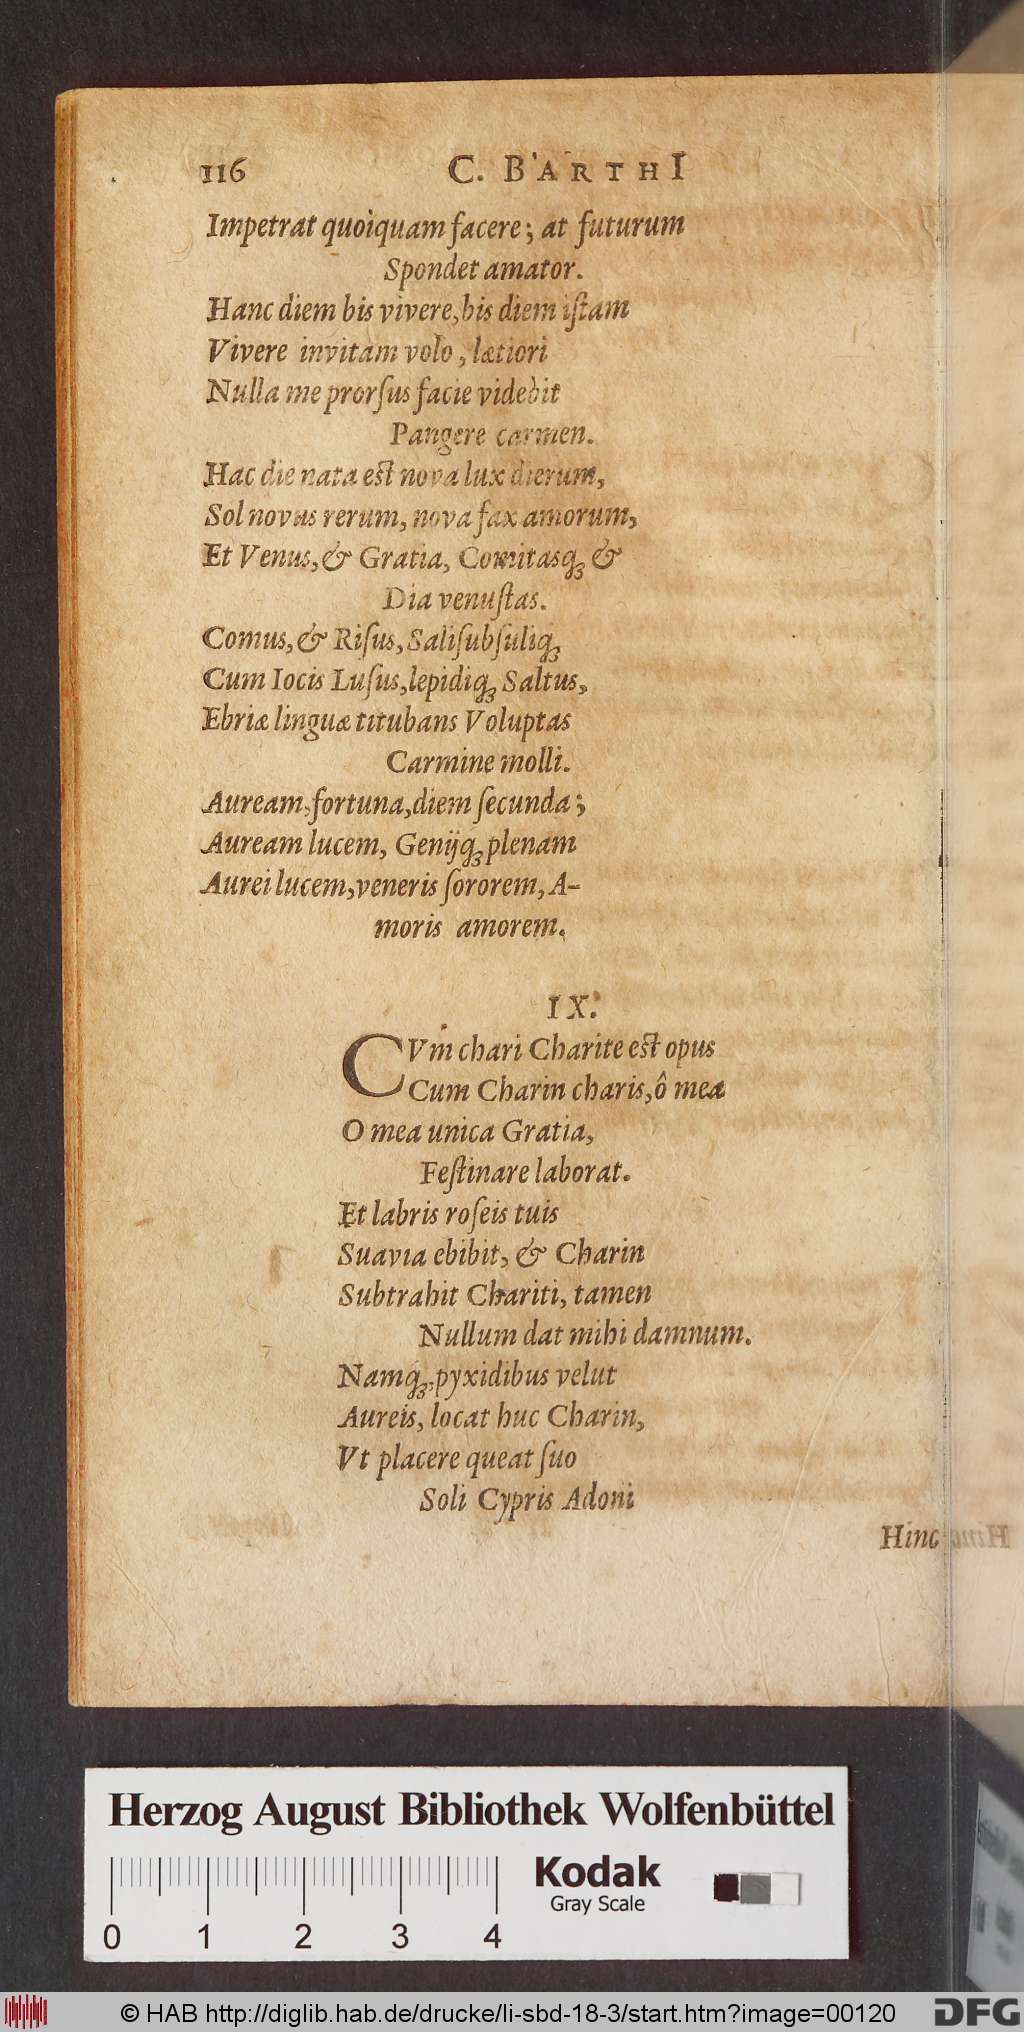 116 C. BARTHI
Impetrat quoiquam facere; at futurum
Spondet amator.
Hanc diem bis vivere, bis diem iſtam
Vivere invitam volo, lætiori
Nulla me prorſus facie videbit
Pangere carmen.
Hac die nata eſt nova lux dierum,
Sol novus rerum, nova fax amorum,
Et Venus, & Gratia, Comitasq́; &
Dia venuſtas.
Comus, & Riſus, Saliſubſuliq́;
Cum Iocis Luſus, lepidiq́; Saltus,
Ebriæ linguæ titubans Voluptas
Carmine molli.
Auream, fortuna, diem ſecunda;
Auream lucem, Genijq́; plenam
Aurei lucem, veneris ſororem, A-
moris amorem.
IX.
CVm chari Charite eſt opus
Cum Charin charis, ô mea
O mea unica Gratia,
Feſtinare laborat.
Et labris roſeis tuis
Suavia ebibit, & Charin
Subtrahit Chariti, tamen
Nullum dat mihi damnum.
Namq́;, pyxidibus velut
Aureis, locat huc Charin,
Vt placere queat ſuo
Soli Cypris Adoni
Hinc
Herzog August Bibliothek Wolfenbüttel
0 1 2 3 4
Kodak
Gray Scale
© HAB http://diglib.hab.de/drucke/li-sbd-18-3/start.htm?image=00120
DFG